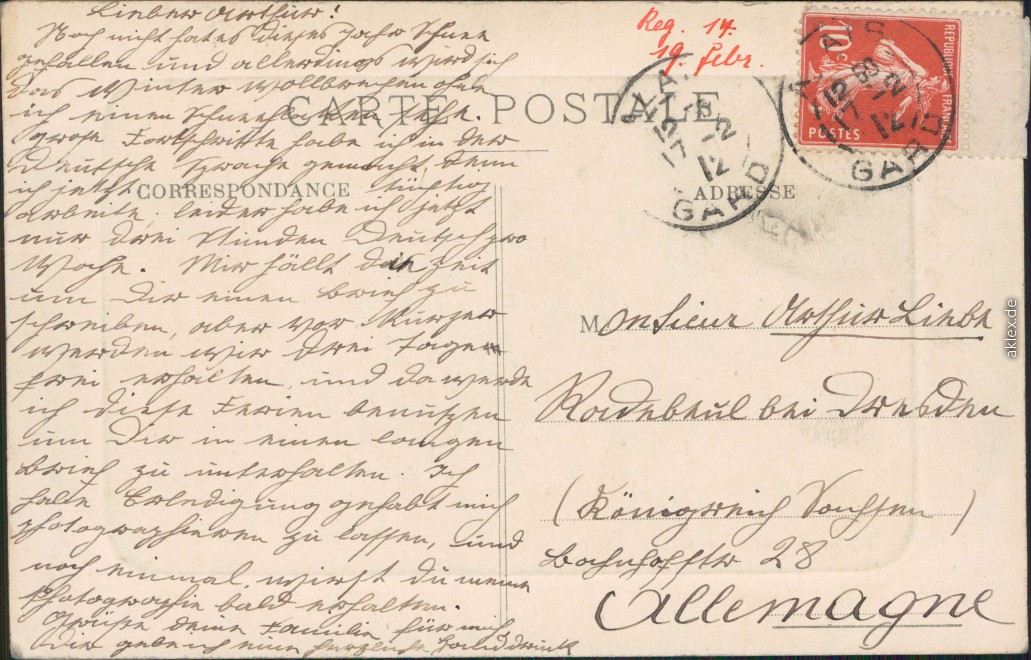 Lieber Arthur!
Noch nicht hat es dieses Jahr Schnee
gefallen und allerdings wird sich
das Winter vollbringen ohne
ich einen Schneeflocken sehe.
Große Fortschritte habe ich in der
Deutsche Sprache gemacht, denn
ich jetzt tüchtig
arbeite; leider habe ich jetzt
nur drei Stunden Deutsch pro
Woche. Mir fällt die Zeit
um Dir einen Brief zu
schreiben, aber vor Kurzer
werden wir drei Tagen
frei erhalten, und da werde
ich diese Ferien benutzen
um Dir in einen langen
Brief zu unterhalten. Ich
habe Erledigung gehabt mich
photographieren zu lassen, und
noch einmal wirst du meine
Photographie bald erhalten.
Grüße deine Familie für mich
Dir gebe ich einen herzlichen Handdruck
Reg. 17.
19. Febr.
CARTE POSTALE
CORRESPONDANCE
ADRESSE
10c
REPUBLIQUE FRANÇAISE
POSTES
ALAIS
GARD
12
17-2
12
ALAIS
GARD
12
17-2
12
Monsieur Arthur Liebe
Radebeul bei Dresden
(Königreich Sachsen)
Bahnhofstr 28
Allemagne
aklex.de